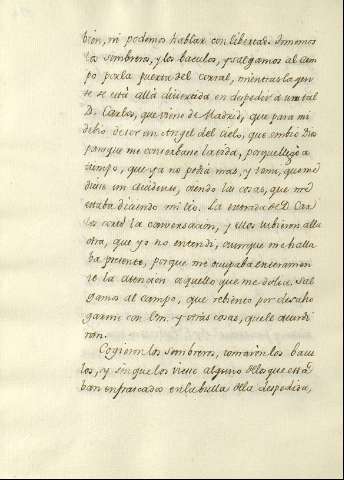 bion, ni podemos hablar con libertad. Tomemos
los sombreros, y los baculos, y salgamos al cam-
po por la puerta del corral, mientras la gen-
te se està allà divertida en despedir a un tal
D. Carlos, que viene de Madrid, que para mi
debio de ser un Angel del Cielo, que embiò Dios
para que me conserbase la vida, porque llegò a
tiempo, que ya no podia mas, y temi, que me
diese un accidente, oiendo las cosas, que me
estaba diciendo mi tio. La entrada de D. Car-
los cortò la conversacion, y ellos urdieron allà
otra, que yo no entendi, aunque me halla
ba presente, porque me ocupaba enteramen-
te la atencion aquello que me dolia. Sal
gamos al campo, que rebiento por desaho
garme con Vm. y otras cosas, que le aturdi
ran.
Cogieron los sombreros, tomaron los bacu
los, y sin que los viese alguno de los que està
ban enfrascados en la bulla de la despedida,